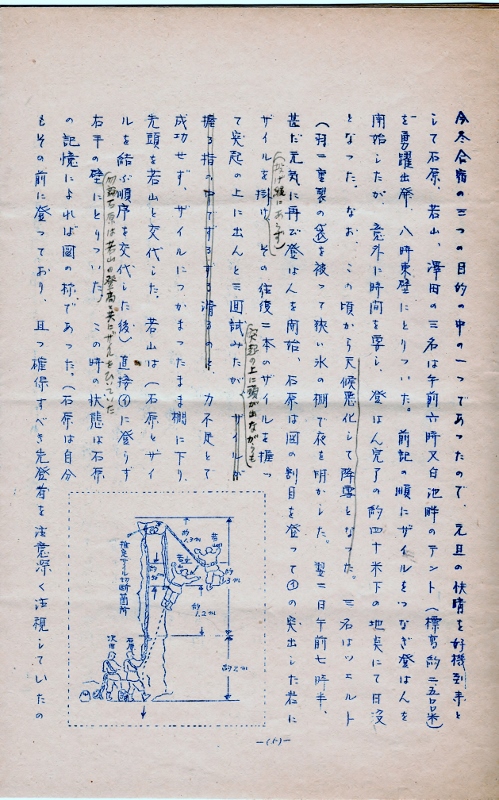 今冬合宿の三つの目的の中の一つであつたので、元旦の快晴を好機到来と
して石原、若山、澤田の三名は午前六時又白池畔のテント(標高約二五〇〇米)
を勇躍出発、八時東壁にとりついた。前記の順にザイルをつなぎ登はんを
開始したが、意外に時間を要し、登はん完了の約四十米下の地点にて日没
となつた。なお、この頃から天候悪化して降雪となった。三名はツェルト
(羽二重製の袋を被って狭い氷の棚で夜を明かした。翌二日午前七時半、
甚だ元気に再び登はんを開始、石原は図の割目を登って①の突出した岩に
ザイルを掛け、その往復二本のザイルを握っ
て突起の上に出んと三回試みたが、ザイルが
(突起の上に頭が出ながらも)
握る指の中でずるずる滑るのと、力不足とで
成功せず、ザイルにつかまったまま棚に下り、
先頭を若山と交代した。若山は(石原とザイ
ルを結ぶ順序を交代した後)直接①に登らず
右手の壁にとりついた。この時の状態は石原
(勿論石原は若山の登高と共にザイルをひいていた
の記憶によれば図の様であつた。(石原は自分
もその前に登つており、且つ確保すべき先登者を注意深く注視していたの
推定ザイル切断箇所
若山
石原
約1.2m